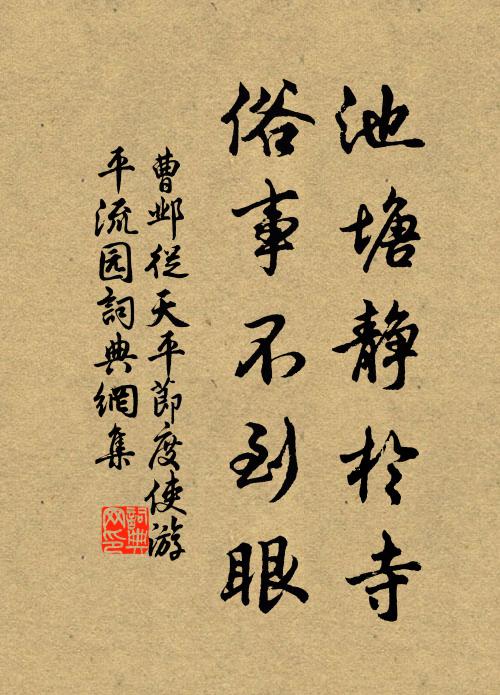 池塘静於寺
俗事不到眼
曹邺從天平節度使游
平流园詞典網集
詞典
网印